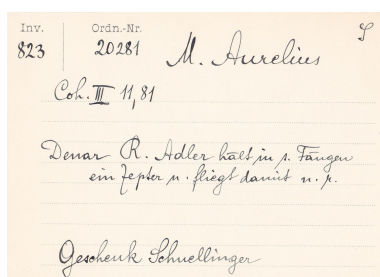 Inv. Ordn.-Nr. S
823 20281 M. Aurelius
Coh. III 11,81
Denar R. Adler hält in s. Fängen
ein Zepter u. fliegt damit n. r.
Geschenk Schnellinger